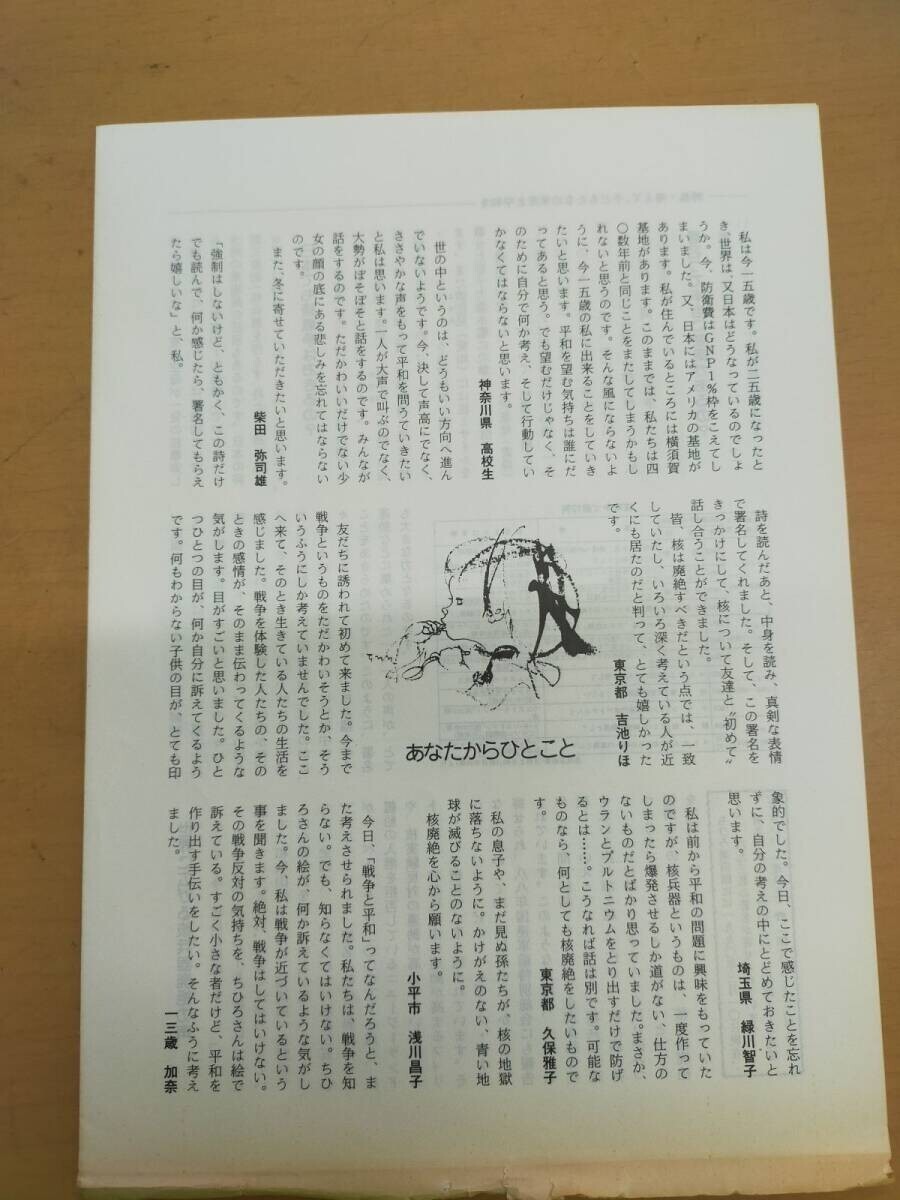 私は今一五歳です。私が二五歳になったと
き、世界は、又日本はどうなっているのでしょ
うか。今、防衛費はGNP1%枠をこえてし
まいました。又、日本にはアメリカの基地が
あります。私が住んでいるところには横須賀
基地があります。このままでは、私たちは四
〇数年前と同じことをまたしてしまうかもし
れないと思うのです。そんな風にならないよ
うに、今一五歳の私に出来ることをしていき
たいと思います。平和を望む気持ちは誰にだ
ってあると思う。でも望むだけじゃなく、そ
のために自分で何か考え、そして行動してい
かなくてはならないと思います。
神奈川県 高校生
世の中というのは、どうもいい方向へ進ん
でいないようです。今、決して声高にでなく、
ささやかな声をもって平和を問うていきたい
と私は思います。一人が大声で叫ぶのでなく、
大勢がぼそぼそと話をするのです。みんなが
話をするのです。ただかわいいだけでない少
女の顔の底にある悲しみを忘れてはならない
のです。
また、冬に寄せていただきたいと思います。
柴田 弥司雄
「強制はしないけど、ともかく、この詩だけ
でも読んで、何か感じたら、署名してもらえ
たら嬉しいな」と、私。
詩を読んだあと、中身を読み、真剣な表情
で署名してくれました。そして、この署名を
きっかけにして、核について友達と〝初めて〟
話し合うことができました。
皆、核は廃絶すべきだという点では、一致
していたし、いろいろ深く考えている人が近
くにも居たのだと判って、とても嬉しかった
です。
東京都 吉池りほ
あなたからひとこと
友だちに誘われて初めて来ました。今まで
戦争というものをただかわいそうとか、そう
いうふうにしか考えていませんでした。ここ
へ来て、そのとき生きている人たちの生活を
感じました。戦争を体験した人たちの、その
ときの感情が、そのまま伝わってくるような
気がします。目がすごいと思いました。ひと
つひとつの目が、何か自分に訴えてくるよう
です。何もわからない子供の目が、とても印
象的でした。今日、ここで感じたことを忘れ
ずに、自分の考えの中にとどめておきたいと
思います。
埼玉県 緑川智子
私は前から平和の問題に興味をもっていた
のですが、核兵器というものは、一度作って
しまったら爆発させるしか道がない、仕方の
ないものだとばかり思っていました。まさか、
ウランとプルトニウムをとり出すだけで防げ
るとは……。こうなれば話は別です。可能な
ものなら、何としても核廃絶をしたいもので
す。
東京都 久保雅子
私の息子や、まだ見ぬ孫たちが、核の地獄
に落ちないように。かけがえのない、青い地
球が滅びることのないように。
核廃絶を心から願います。
小平市 浅川昌子
今日、「戦争と平和」ってなんだろうと、ま
た考えさせられました。私たちは、戦争を知
らない。でも、知らなくてはいけない。ちひ
ろさんの絵が、何か訴えているような気がし
ました。今、私は戦争が近づいているという
事を聞きます。絶対、戦争はしてはいけない。
その戦争反対の気持ちを、ちひろさんは絵で
訴えている。すごく小さな者だけど、平和を
作り出す手伝いをしたい。そんなふうに考え
ました。
一三歳 加奈